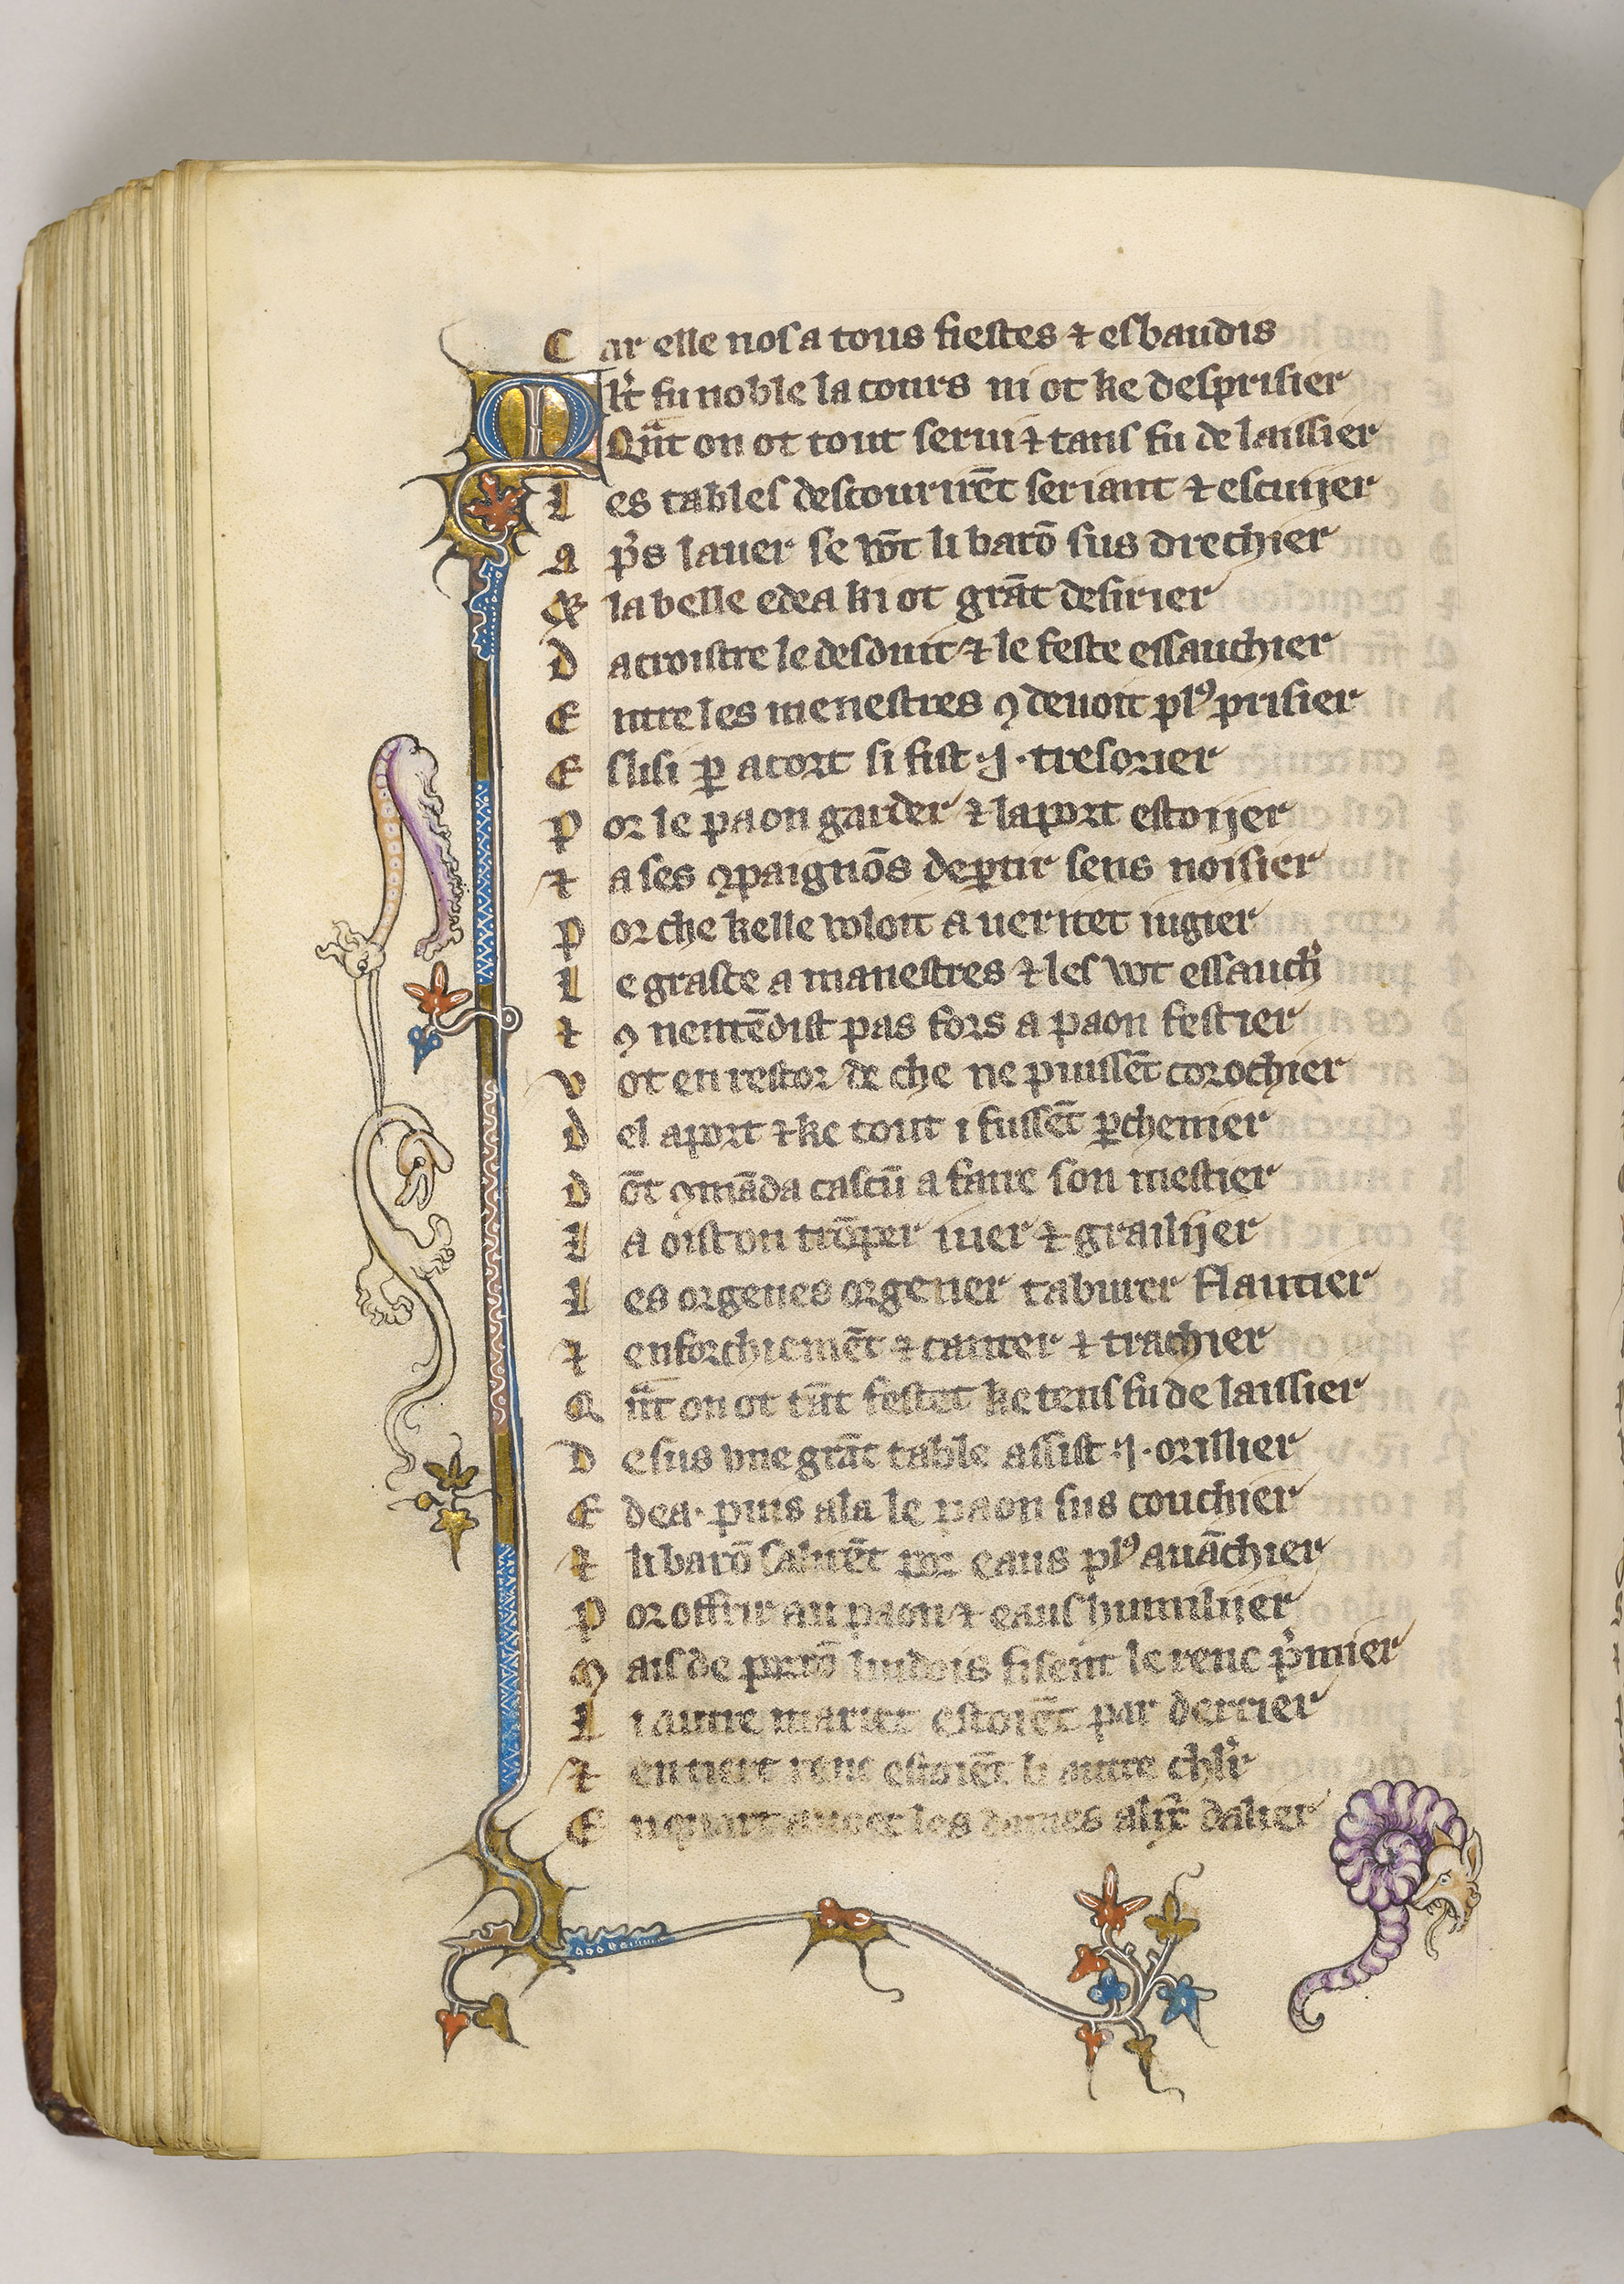 Car elle nos a tous fiestes ⁊ esbaudis
Ml̃t fu noble la cours ni ot ke desprisier
Qãnt on ot tout serui ⁊ tans fu de laissier
Les tables descourirẽt seriant ⁊ escuijer
Ap̃s lauer se võt li barõ sus drechier
Et la belle edea ki ot grãt desirier
Dacroistre le desduit ⁊ le feste essauchier
Entre les menestres ꝯ deuoit plꝰ prisier
Eslisi ꝑ acort si fist ·j· tresorier
Por le paon garder ⁊ laport estoijer
⁊ a ses ꝯpaignõs deꝑtir sens noisier
Por che kelle voloit a ueritet iugier
Le grasce a manestres ⁊ les vot essauch̉
⁊ ꝯ nentẽdist pas fors a paon festier
Vot en restor de che ne puissẽt corochier
Del aport ⁊ ke tout i fussẽt ꝑchenier
Dõt ꝯmãda cascũ a faire son mestier
La oist on trõper iuer ⁊ grailijer
Les orgenes orgener taburer flautier
⁊ enforchiemẽt ⁊ canter ⁊ trachier
Qãnt on ot tãnt festet ke tens fu de laissier
Desus vne grãt table assist ·j· orillier
Edea · puis ala le paon sus couchier
⁊ li barõ salirẽt por eaus plꝰ auãchier
Por offrir au paon ⁊ eaus humilijer
Mais de prtõ lindois fisent le renc p̉mier
Li autre mariet estoiẽt par derrier
⁊ en tiert renc estoiẽt li autre chl̉r
En quart auoec les dames alix̃ dalier